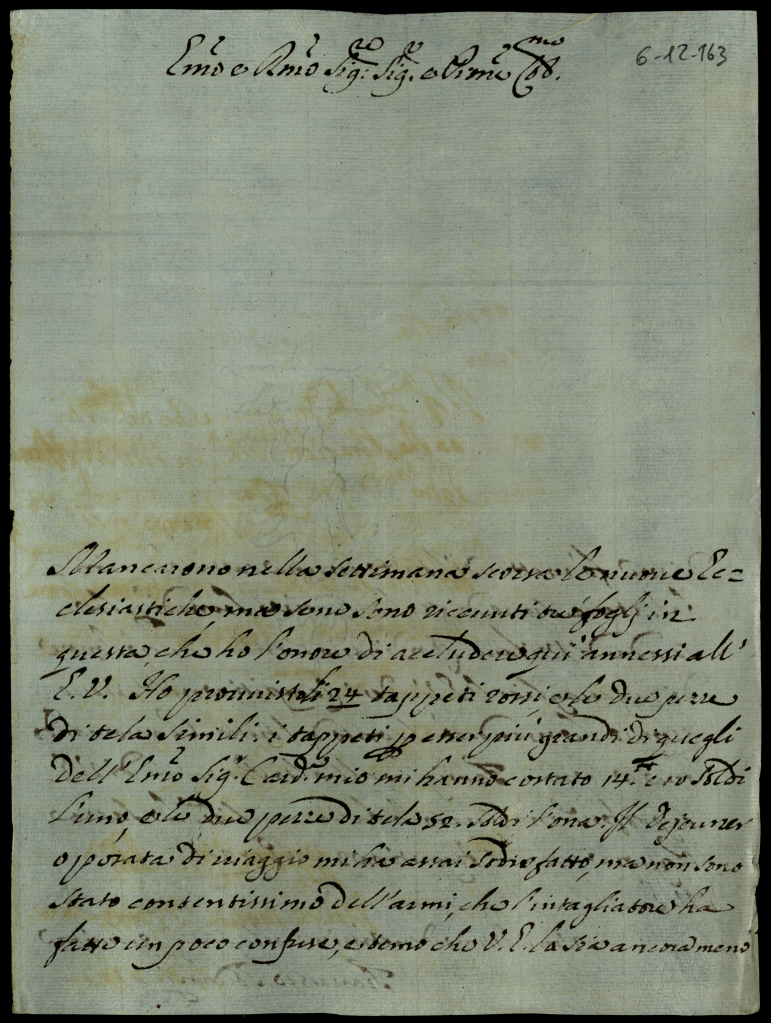 Emo e Rmo Sigre Sigr e Prne Colmo
6-12-163
Mancarono nella settimana scorsa le nuove Ec=
clesiastiche, ma se ne sono ricevuti tre foglj in
questa, che ho l'onore di accludere qui annessi all'
E. V. Ho provvisto li 24 tappeti rossi, e le due pezze
di tela simili: i tappeti p esser più grandi di quegli
dell'Emo Sigr Cardl mio mi hanno costato 14 e 10 soldi
l'uno, e le due pezze di tela 52. soldi l'ona. Il dejeuner
o posata di viaggio mi ha assai sodisfatto, ma non sono
stato contentissimo dell'armi, che l'intagliatore ha
fatte un poco confuse, e temo che V. E. lo sia ancora meno